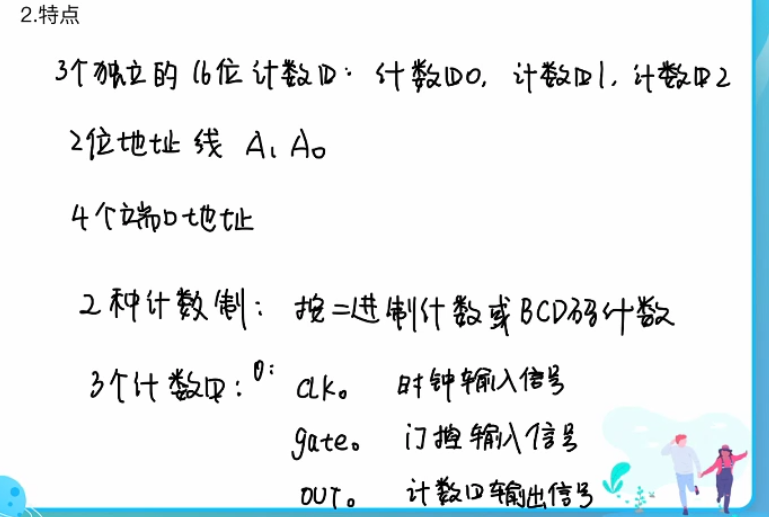 2.特点
3个独立的16位计数口: 计数口0, 计数口1, 计数口2
2位地址线 A₁ A₀
4个端口地址
2种计数制: 按二进制计数或BCD码计数
3个计数口: 0: CLK₀ 时钟输入信号
gate₀ 门控输入信号
OUT₀ 计数口输出信号